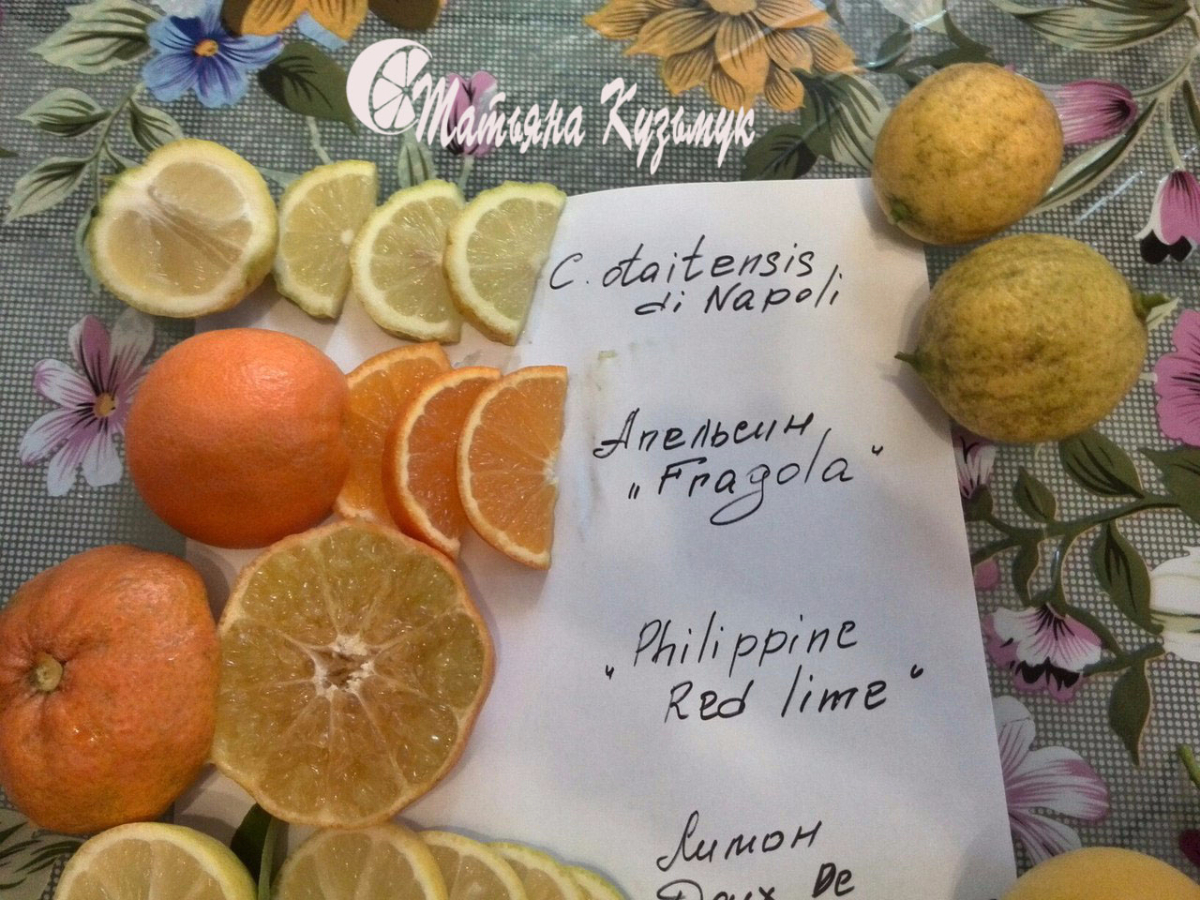 Татьяна Кузьмук
C. otaitensis
di Napoli
Апельсин
„Fragola"
„Philippine
Red lime"
Лимон
Doux De